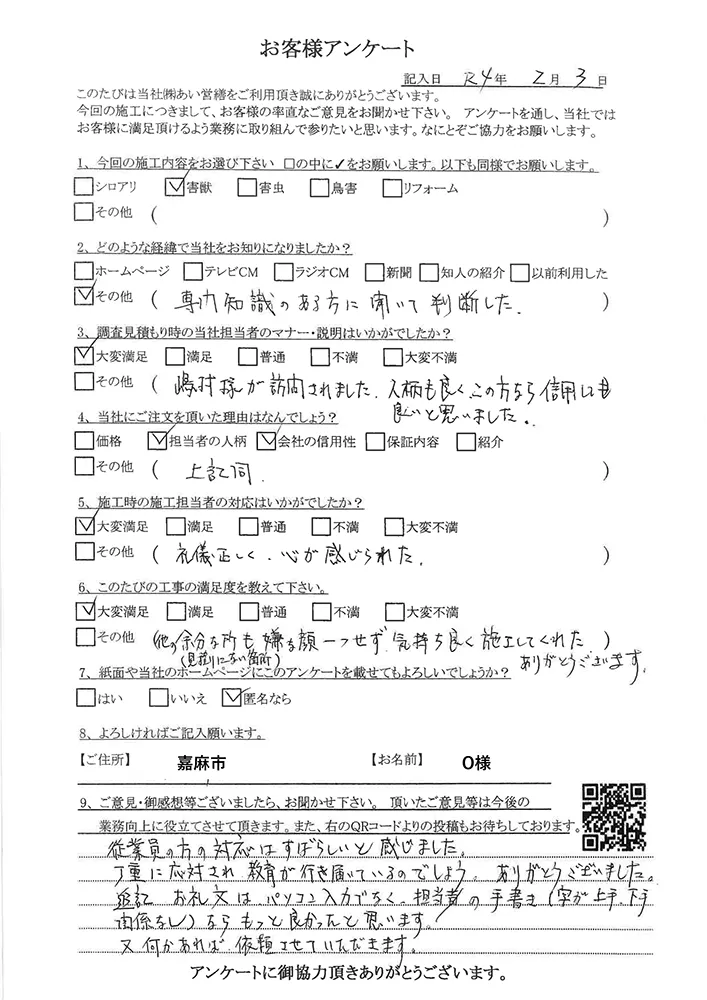 お客様アンケート
記入日 R4年 2月 3日
このたびは当社㈱あい営繕をご利用頂き誠にありがとうございます。
今回の施工につきまして、お客様の率直なご意見をお聞かせ下さい。 アンケートを通し、当社では
お客様に満足頂けるよう業務に取り組んで参りたいと思います。なにとぞご協力をお願いします。
1、今回の施工内容をお選び下さい □の中に✓をお願いします。以下も同様でお願いします。
□シロアリ ☑害獣 □害虫 □鳥害 □リフォーム
□その他 ( )
2、どのような経緯で当社をお知りになりましたか？
□ホームページ □テレビCM □ラジオCM □新聞 □知人の紹介 □以前利用した
☑その他 ( 専門知識のある方に聞いて判断した. )
3、調査見積もり時の当社担当者のマナー・説明はいかがでしたか？
☑大変満足 □満足 □普通 □不満 □大変不満
□その他 ( 嶋村様が訪問されました. 人柄も良くこの方なら信用しても
良いと思いました。
4、当社にご注文を頂いた理由はなんでしょう？
□価格 ☑担当者の人柄 ☑会社の信用性 □保証内容 □紹介
□その他 ( 上記同. )
5、施工時の施工担当者の対応はいかがでしたか？
☑大変満足 □満足 □普通 □不満 □大変不満
□その他 ( 礼儀正しく. 心が感じられた. )
6、このたびの工事の満足度を教えて下さい。
☑大変満足 □満足 □普通 □不満 □大変不満
□その他 (他の余分な所も嫌な顔一つせず気持ち良く施工してくれた )
(見積りにない箇所) ありがとうございます.
7、紙面や当社のホームページにこのアンケートを載せてもよろしいでしょうか？
□はい □いいえ ☑匿名なら
8、よろしければご記入願います。
【ご住所】 嘉麻市 【お名前】 O様
9、ご意見・御感想等ございましたら、お聞かせ下さい。 頂いたご意見等は今後の
業務向上に役立てさせて頂きます。また、右のQRコードよりの投稿もお待ちしております。
従業員の方の対応はすばらしいと感じました。
丁重に応対され 教育が行き届いているのでしょう。ありがとうございました。
追記 お礼文は、パソコン入力でなく、担当者の手書き(字が上手、下手
関係なし)ならもっと良かったと思います。
又何かあれば、依頼させていただきます。
アンケートに御協力頂きありがとうございます。